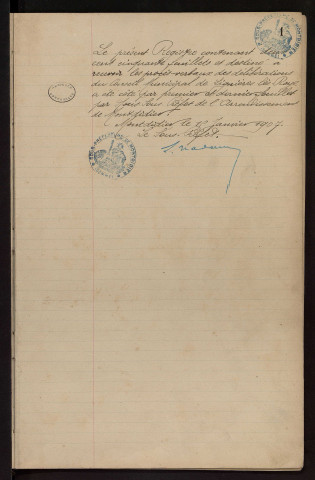 1
Le présent Registre contenant
cent cinquante feuillets et destiné à
recevoir les procès-verbaux des délibérations
du Conseil Municipal de
a été coté par premier et dernier feuillet
par Nous Sous-Préfet de l'Arrondissement
de Montdidier.
Montdidier le Janvier 1927.
Le Sous-Préfet.